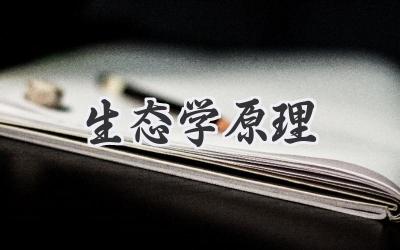 生态学原理